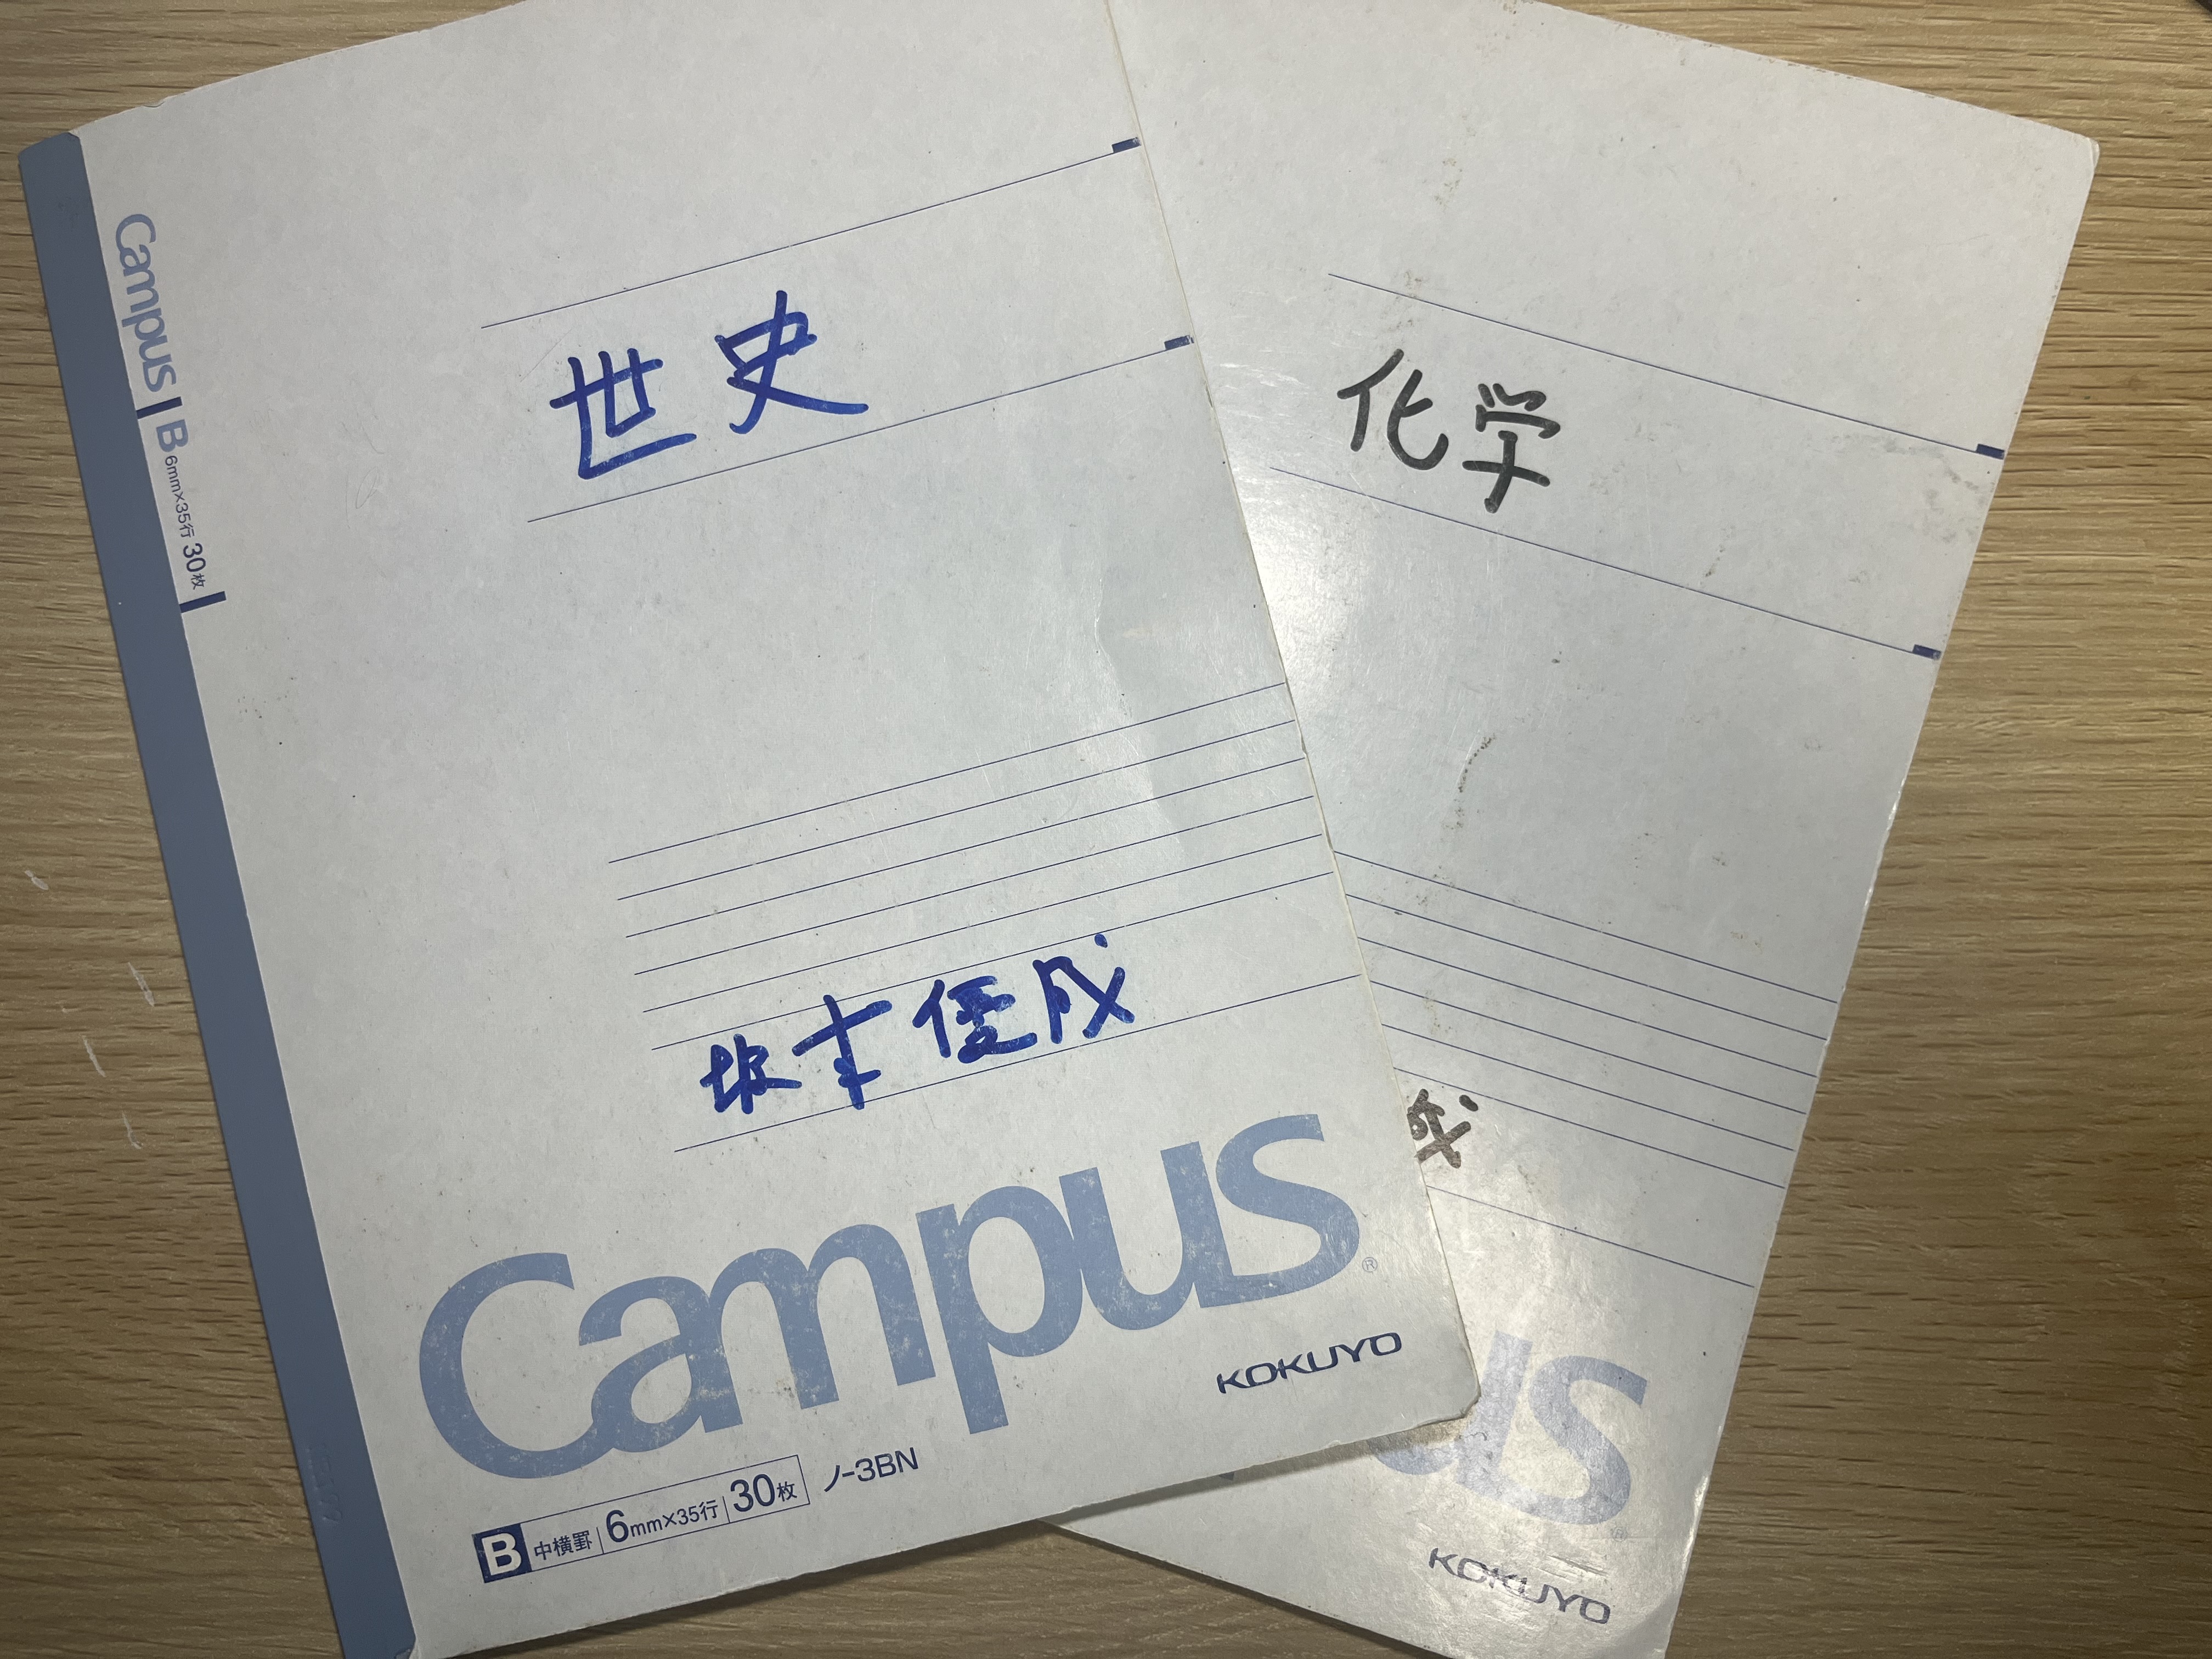 Campus B 6mm×35行 30枚
世史
坂本優成
Campus®
KOKUYO
B 中横罫 6mm×35行 30枚 ノ-3BN
化学
成
us
KOKUYO